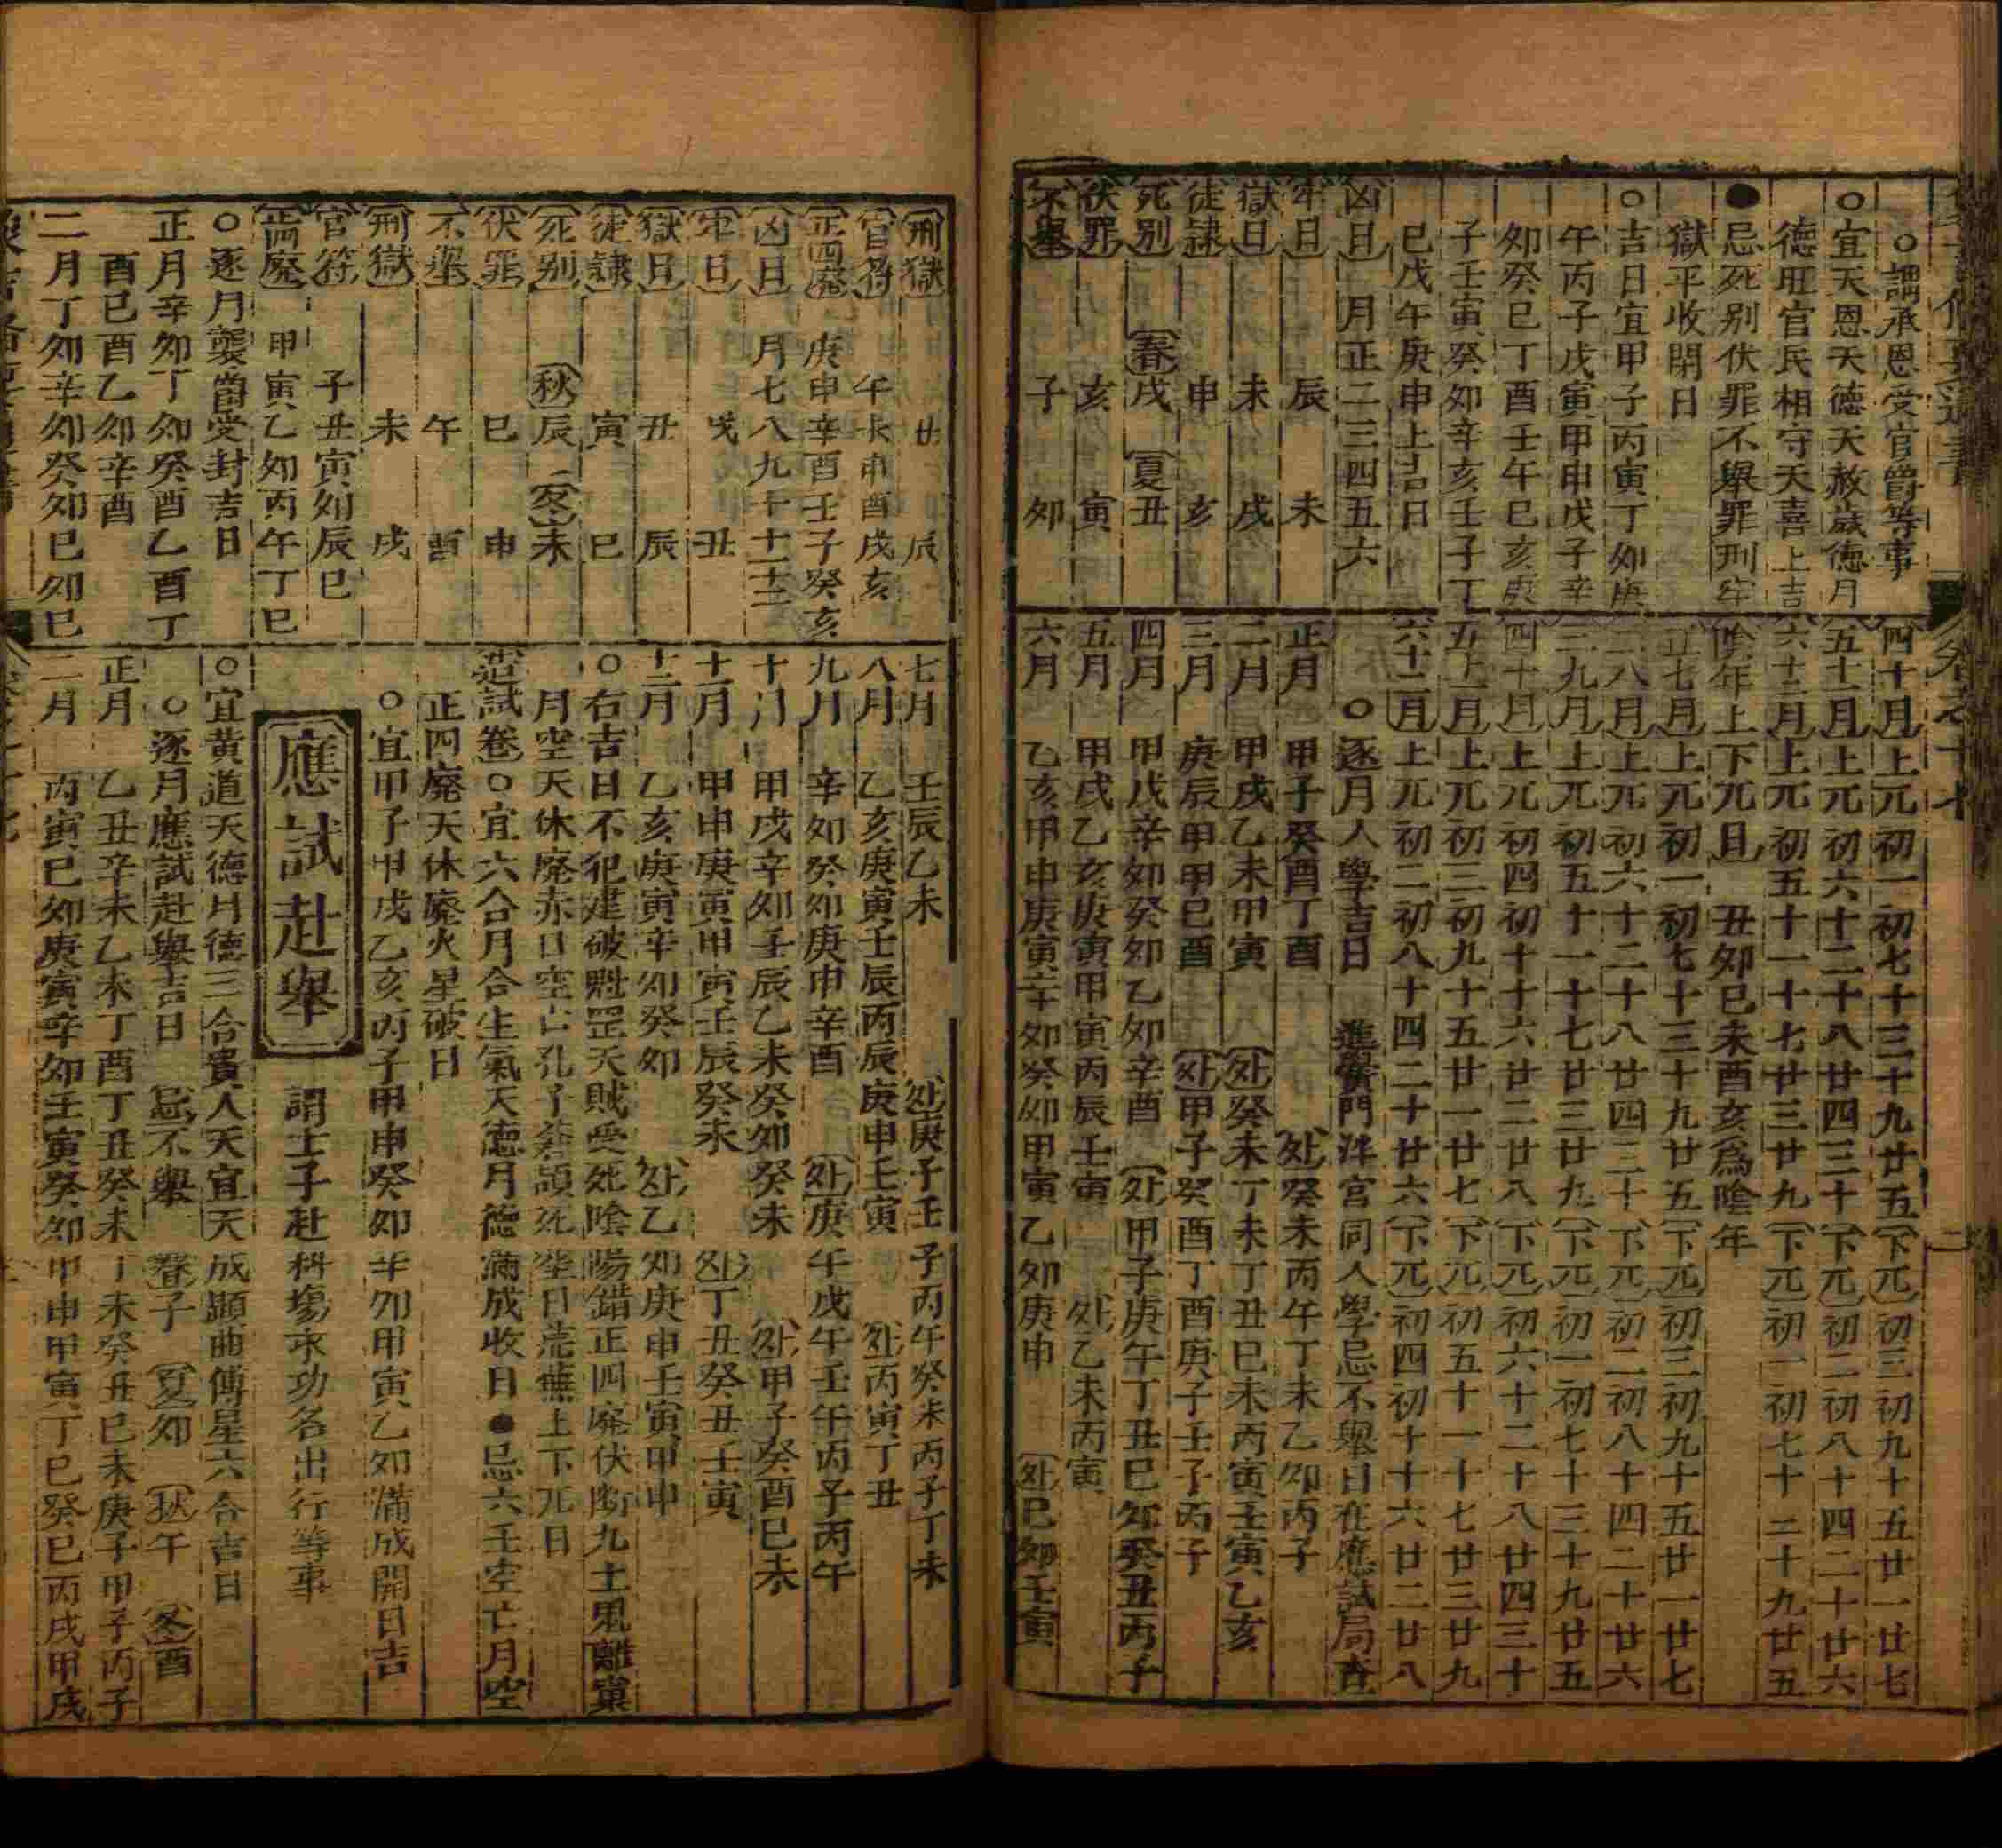 ○謂承恩受官爵等事
○宜天恩天德天赦歲德月
德旺官民相守天喜上吉
●忌死别伏罪不舉罪刑牢
獄平收閉日
○吉日宜甲子丙寅丁卯庚
午丙子戊寅甲申戊子辛
卯癸巳丁酉壬午巳亥庚
子壬寅癸卯辛亥壬子丁
巳戊午庚申上吉日
凶日 月正二三四五六
牢日 辰 未
獄日 未 戌
徒隸 申 亥
死别 春戌 夏丑
伏罪 亥 寅
不舉 子 卯
四十月 上元 初一初七十三十九廿五 下元 初三初九十五廿一廿七
五十一月 上元 初六十二十八廿四三十 下元 初二初八十四二十廿六
六十二月 上元 初五十一十七廿三廿九 下元 初一初七十三十九廿五
陰年上下元日 丑卯巳未酉亥爲陰年
正七月 上元 初一初七十三十九廿五 下元 初三初九十五廿一廿七
二八月 上元 初六十二十八廿四三十 下元 初二初八十四二十廿六
三九月 上元 初五十一十七廿三廿九 下元 初一初七十三十九廿五
四十月 上元 初四初十十六廿二廿八 下元 初六十二十八廿四三十
五十一月 上元 初三初九十五廿一廿七 下元 初五十一十七廿三廿九
六十二月 上元 初二初八十四二十廿六 下元 初四初十十六廿二廿八
○逐月人學吉日 進黌門泮宮同人學忌不舉日在應試局查
正月 甲子癸酉丁酉 外癸未丙午丁未乙卯丙子
二月 甲戌乙未甲寅 外癸未丁未丁丑巳未丙寅壬寅乙亥
三月 庚辰甲申巳酉 外甲子癸酉丁酉庚子壬子丙子
四月 甲戌辛卯癸卯乙卯辛酉 外甲子庚午丁丑巳卯癸丑丙子
五月 甲戌乙亥庚寅甲寅丙辰壬寅 外乙未丙寅
六月 乙亥甲申庚寅辛卯癸卯甲寅乙卯庚申 外巳卯壬寅
刑獄 丑 辰
官符 午未申酉戌亥
正四廢 庚申辛酉壬子癸亥
凶日 月七八九十十一十二
牢日 戌 丑
獄日 丑 辰
徒隸 寅 巳
死别 秋辰 冬未
伏罪 巳 申
不舉 午 酉
刑獄 未 戌
官符 子丑寅卯辰巳
正四廢 甲寅乙卯丙午丁巳
○逐月襲爵受封吉日
正月辛卯丁卯癸酉乙酉丁
酉巳酉乙卯辛酉
二月丁卯辛卯癸卯巳卯巳
七月 壬辰乙未 外庚子壬子丙午癸未丙子丁未
八月 乙亥庚寅壬辰丙辰庚申壬寅 外丙寅丁丑
九月 辛卯癸卯庚申辛酉 外庚午戊午壬午丙子丙午
十月 甲戌辛卯壬辰乙未癸卯癸未 外甲子癸酉巳未
十一月 甲申庚寅甲寅壬辰癸未 外丁丑癸丑壬寅
十二月 乙亥庚寅辛卯癸卯 外乙卯庚申壬寅甲申
○右吉日不犯建破魁罡天賊受死陰陽錯正四廢伏斷九土鬼離窠
月空天休廢赤口空亡孔子葬頡死葬日荒蕪上下兀日
起試卷○宜六合月合生氣天德月德滿成收日●忌六壬空亡月空
正四廢天休廢火星破日
○宜甲子甲戌乙亥丙子甲申癸卯辛卯甲寅乙卯滿成開日吉
應試赴舉 謂士子赴科塲求功名出行等事
○宜黄道天德月德三合貴人天宜天成顯曲傅星六合吉日
○逐月應試赴舉吉日 忌不舉 春子 夏卯 秋午 冬酉
正月 乙丑辛未乙未丁酉丁丑癸未丁未癸丑巳未庚子甲子丙子
二月 丙寅巳卯庚寅辛卯壬寅癸卯甲申甲寅丁巳癸巳丙戌甲戌